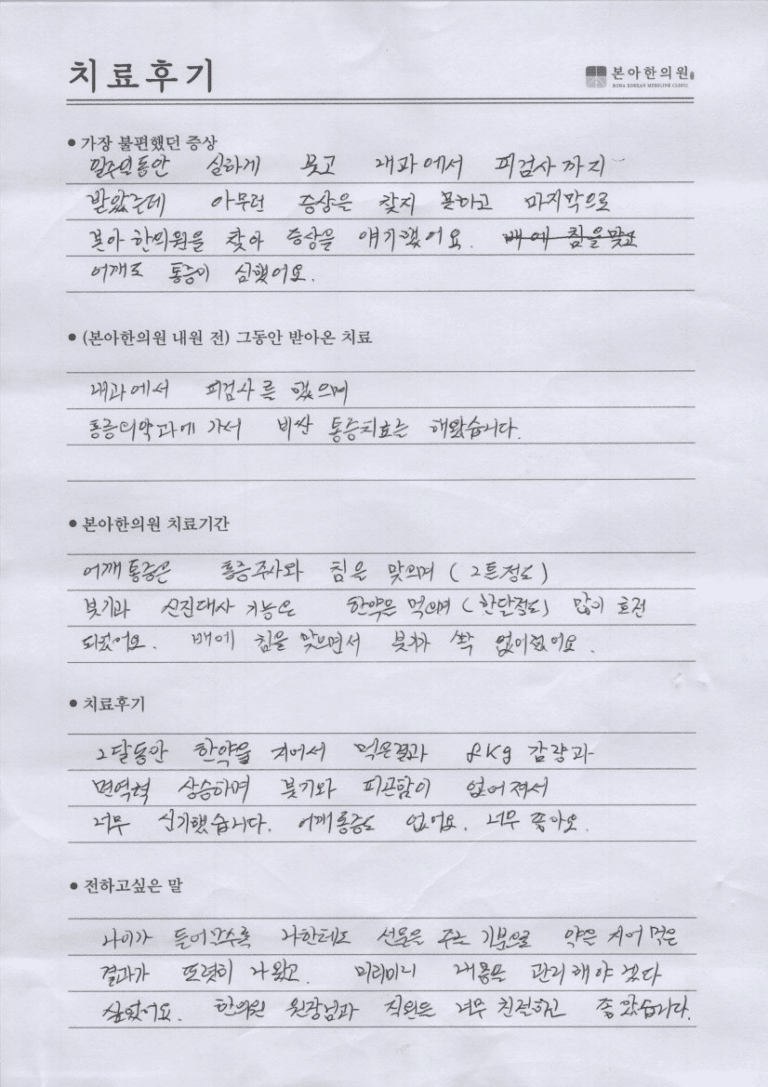 치료후기
본아한의원
BONA KOREAN MEDICINE CLINIC
• 가장 불편했던 증상
일주일동안 심하게 붓고 내과에서 피검사까지
받았는데 아무런 증상을 찾지 못하고 마지막으로
본아한의원을 찾아 증상을 얘기했어요. 배에 침을맞고
어깨도 통증이 심했어요.
• (본아한의원 내원 전) 그동안 받아온 치료
내과에서 피검사를 했으며
통증의학과에 가서 비싼 통증치료를 해왔습니다.
• 본아한의원 치료기간
어깨통증은 통증주사와 침을 맞으며 (2틀정도)
붓기과 신진대사 기능은 한약을 먹으며 (한달정도) 많이 호전
되었어요. 배에 침을 맞으면서 붓기가 쏵 없어졌어요.
• 치료후기
2달동안 한약을 지어서 먹은결과 8kg 감량과
면역력 상승하며 붓기와 피곤함이 없어져서
너무 신기했습니다. 어깨통증도 없어요. 너무 좋아요.
• 전하고싶은 말
나이가 들어갈수록 나한테도 선물을 주는 기분으로 약을 지어 먹은
결과가 또렷히 나왔고. 미리미리 내몸을 관리해야 겠다
싶었어요. 한의원 원장님과 직원들 너무 친절하고 좋았습니다.